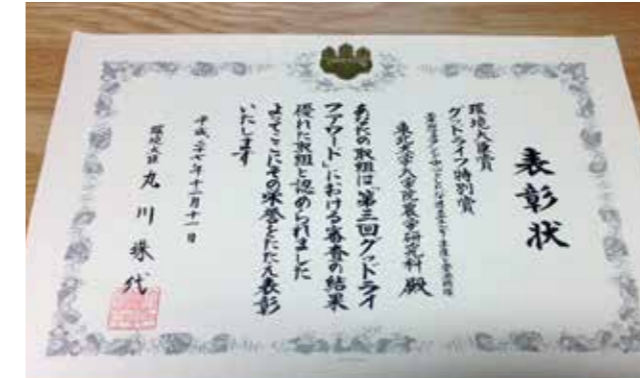 表彰状
環境大臣賞
グッドライフ特別賞
東北大学大学院農学研究科 殿
あなたの取組は「第三回グッドライ
フアワード」における審査の結果
優れた取組と認められました
よってここにその栄誉をたたえ表彰
いたします
平成二十七年十二月十一日
環境大臣 丸川珠代